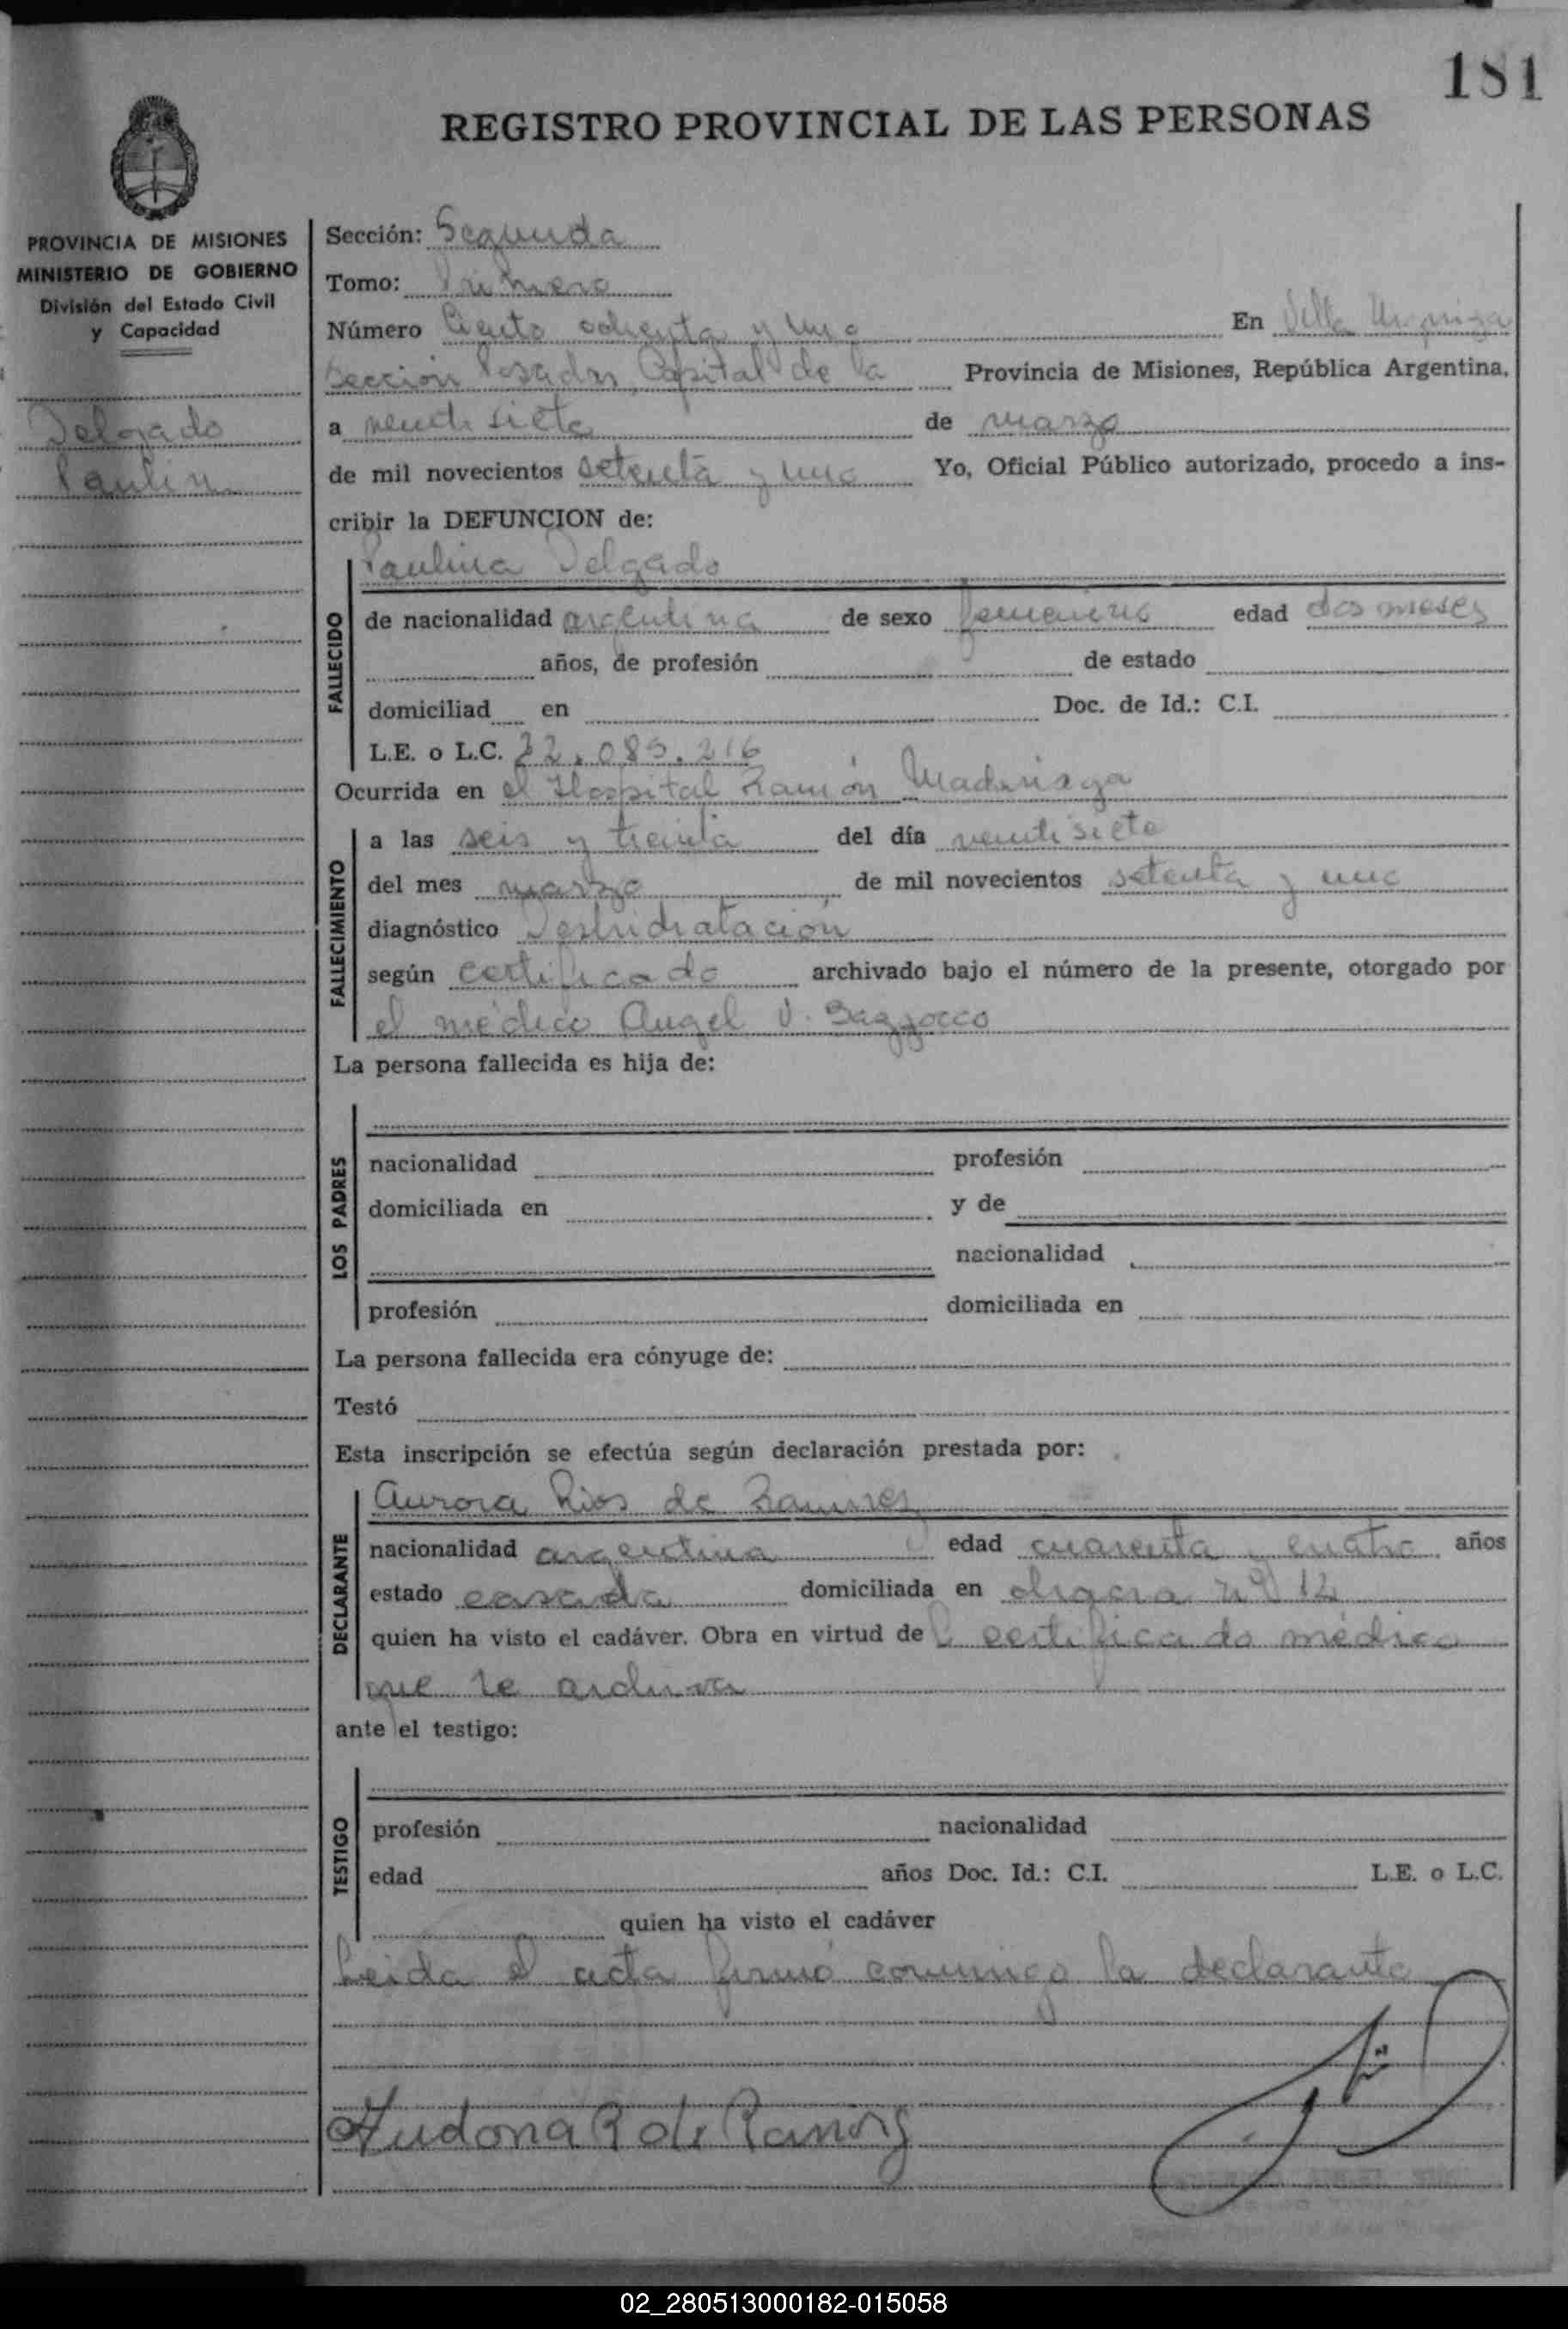 181
REGISTRO PROVINCIAL DE LAS PERSONAS
PROVINCIA DE MISIONES
MINISTERIO DE GOBIERNO
División del Estado Civil
y Capacidad
Delgado
Paulin
Sección: Segunda
Tomo: Primero
Número Ciento ochenta y uno En Villa Urquiza
Sección Posadas, Capital de la Provincia de Misiones, República Argentina,
a veinti siete de marzo
de mil novecientos setenta y uno Yo, Oficial Público autorizado, procedo a ins-
cribir la DEFUNCION de:
FALLECIDO
Paulina Delgado
de nacionalidad argentina de sexo femenino edad dos meses
años, de profesión de estado
domiciliad en Doc. de Id.: C.I.
L.E. o L.C. 22.085.216
Ocurrida en el Hospital Ramón Madariaga
FALLECIMIENTO
a las seis y treinta del día veinti siete
del mes marzo de mil novecientos setenta y uno
diagnóstico Deshidratación
según certificado archivado bajo el número de la presente, otorgado por
el médico Angel V.
La persona fallecida es hija de:
LOS PADRES
nacionalidad profesión
domiciliada en y de
nacionalidad
profesión domiciliada en
La persona fallecida era cónyuge de:
Testó
Esta inscripción se efectúa según declaración prestada por:
DECLARANTE
Aurora Rios de Ramirez
nacionalidad argentina edad cuarenta y cuatro años
estado casada domiciliada en chacra nº 12
quien ha visto el cadáver. Obra en virtud de l certificado médico
que se archiva
ante el testigo:
TESTIGO
profesión nacionalidad
edad años Doc. Id.: C.I. L.E. o L.C.
quien ha visto el cadáver
Leida el acta firmó conmigo la declarante
R de
02_280513000182-015058